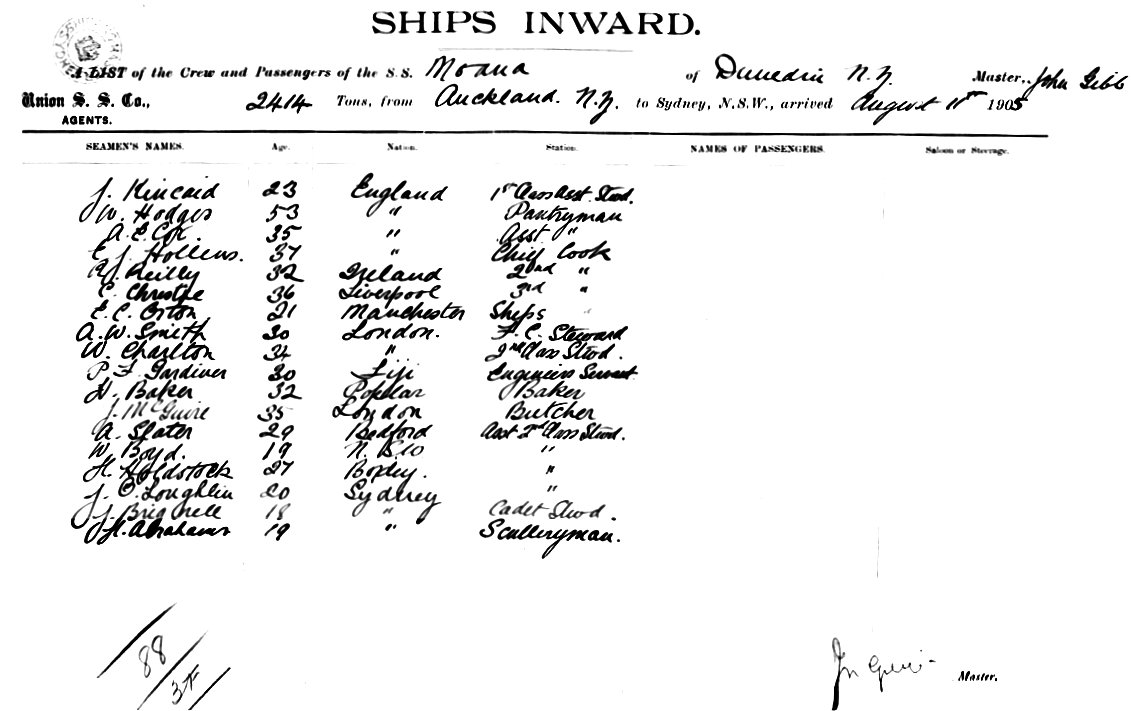 SHIPS INWARD.
A LIST of the Crew and Passengers of the S.S. Moana of Dunedin N.Z. Master, John Gibb
Union S. S. Co., 2414 Tons, from Auckland. N.Z. to Sydney, N.S.W., arrived August 11th 1905
AGENTS.
SEAMEN'S NAMES. Age. Nation. Station. NAMES OF PASSENGERS. Saloon or Steerage.
J. Kincaid 23 England 1st Class Asst. Stwd.
W. Hodges 53 " Pantryman
A. E. Cox. 35 " Asst "
E. J. Hollens. 37 " Chief Cook
R. Reilly 32 Ireland 2nd "
C. Christie 36 Liverpool 3rd "
E. C. Orton 21 Manchester Ships "
A. W. Smith 30 London. F. C. Steward
W. Charlton 34 " 2nd Class Stwd.
P. F. Gardiner 30 Fiji Engineers Servant
H. Baker 32 Poplar Baker
J. McGuire 35 London Butcher
A. Slater 29 Bedford Asst 2nd Class Stwd.
W. Boyd. 19 N. "
H. Holdstock 27 Boxley. "
J. O. Loughlin 20 Sydney "
J. Brignell 18 " Cadet Stwd.
H. Abrahams 19 " Sculleryman.
88
37
Jn Gibb Master.